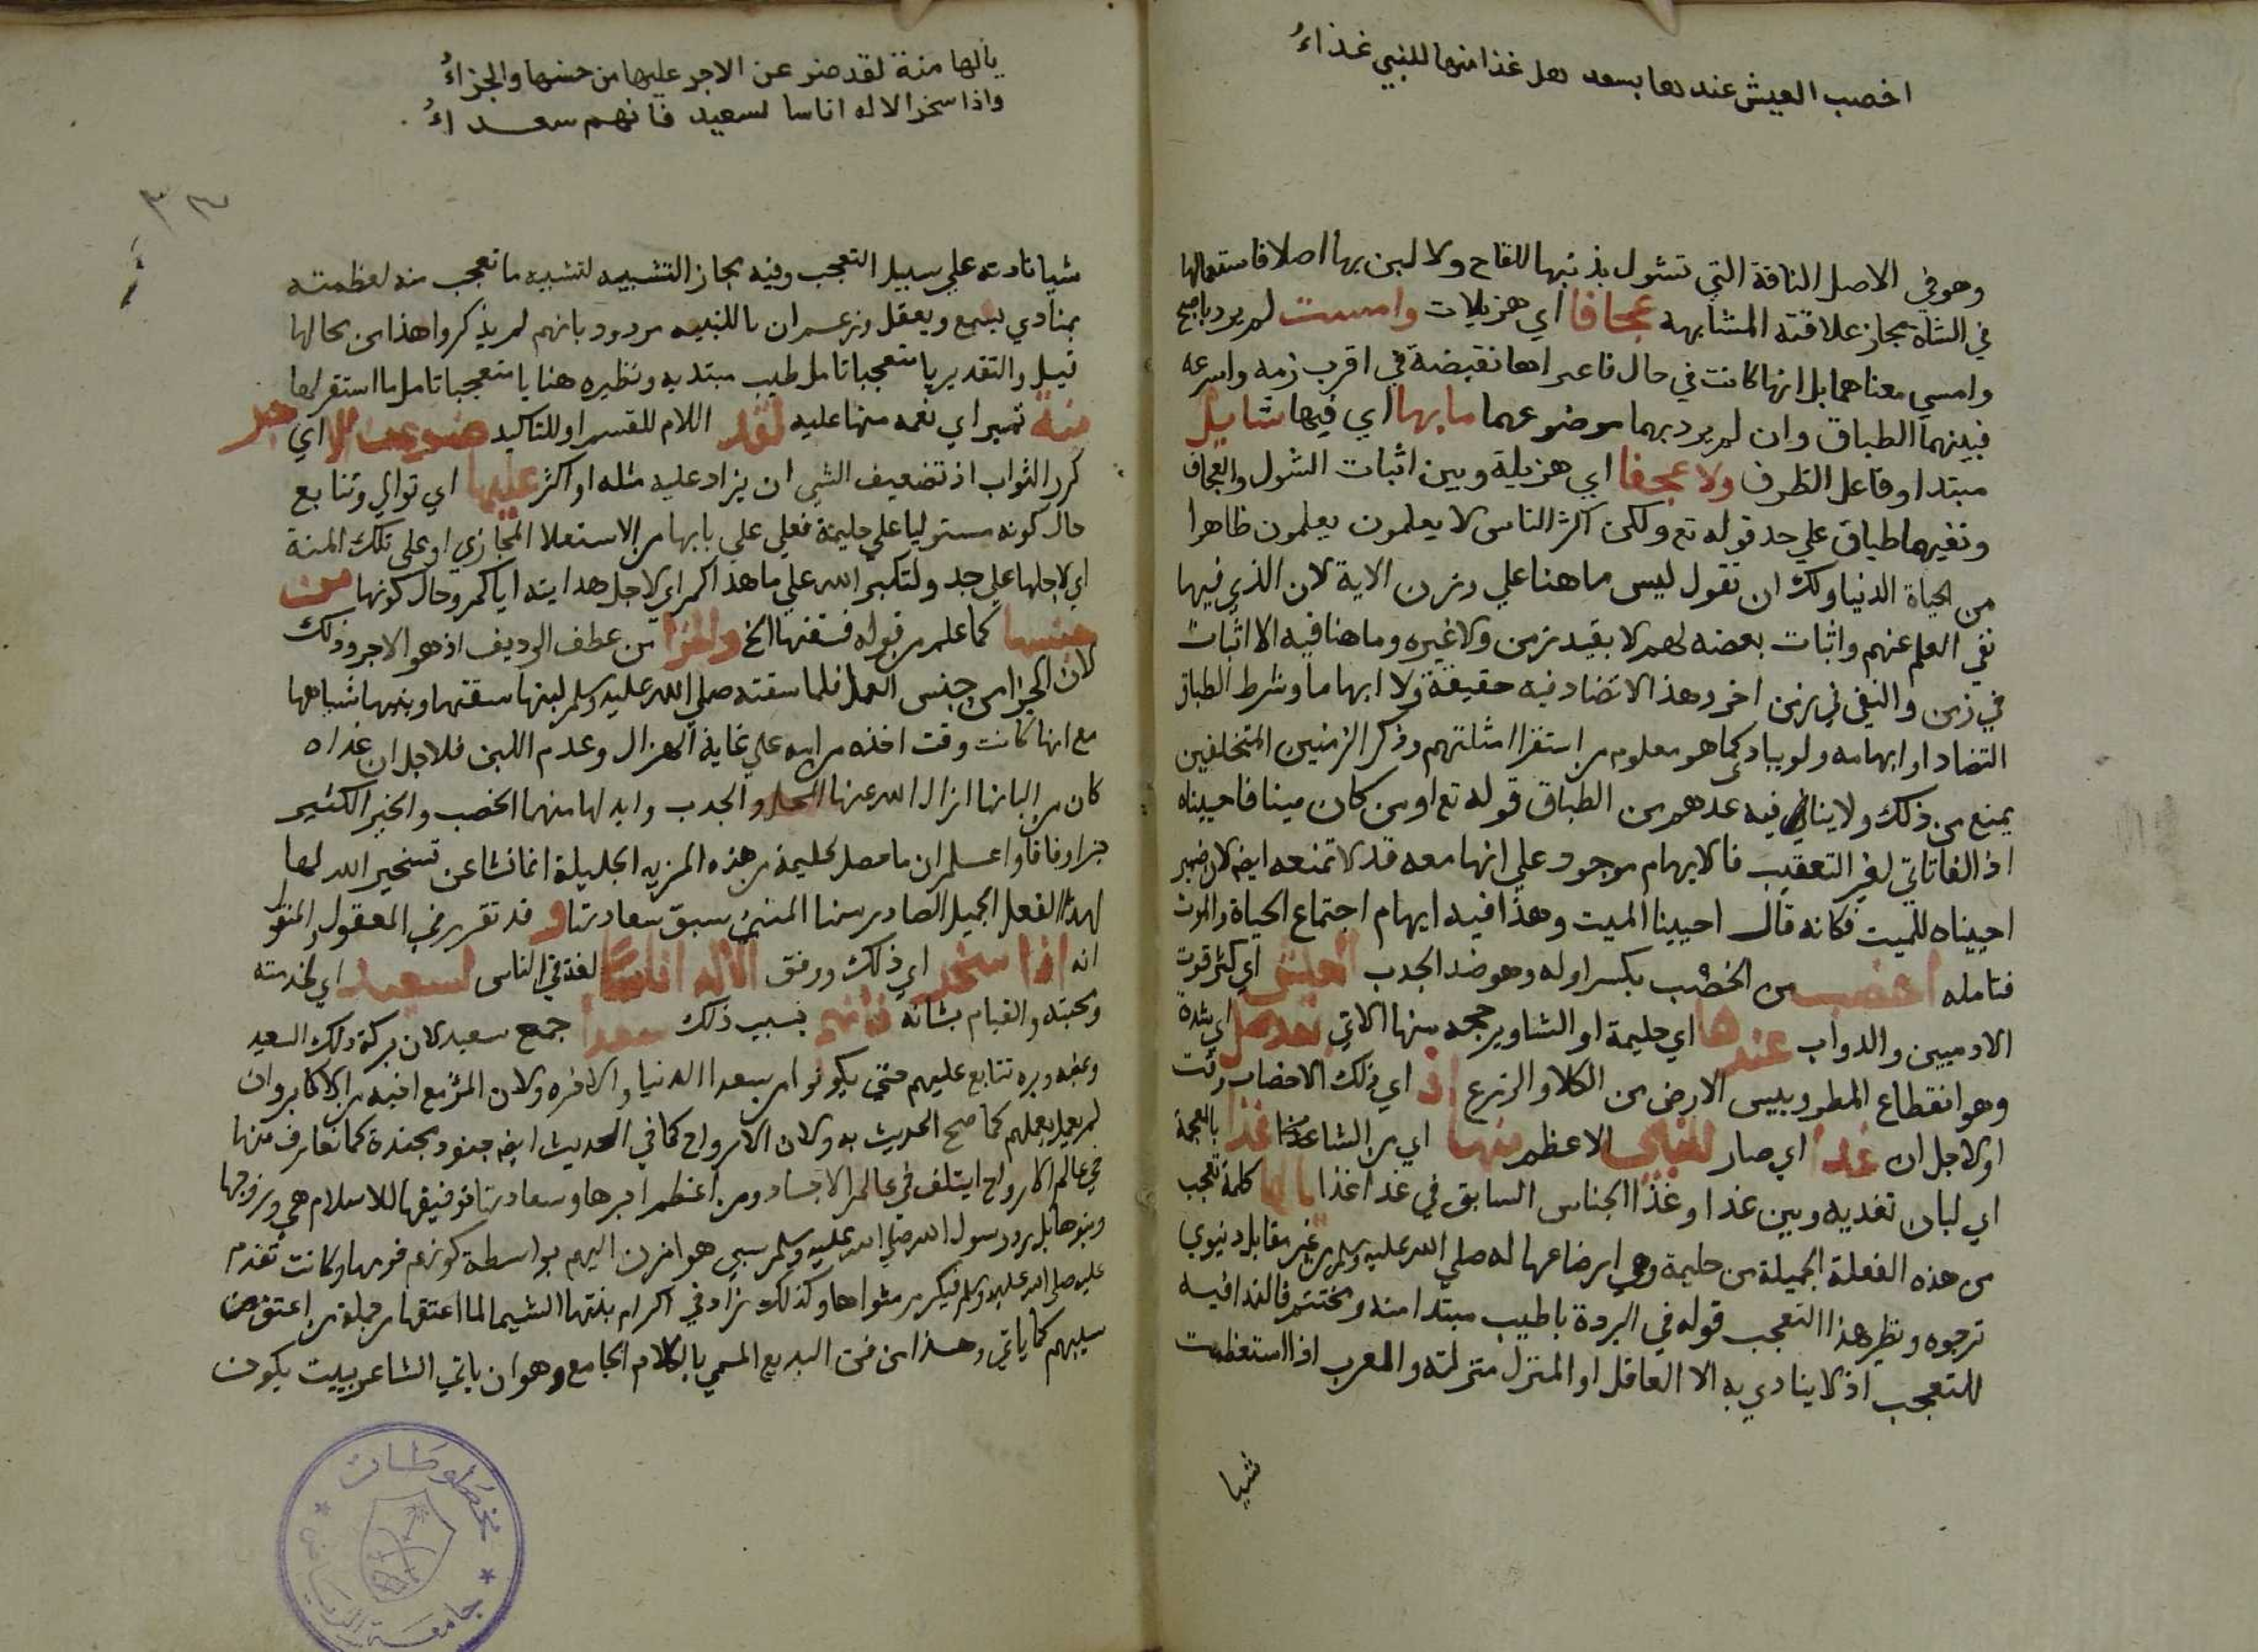 اخصب العيش عندها بعد محل اذ غدا منها للنبي غذاءُ
وهو في الاصل الناقة التي تشول بذنبها للقاح ولا لبن بها اصلا فاستعمالها
في الشاة مجاز علاقته المشابهة عجافا اي هزيلات وامست لم يرد باصبح
وامسي معناهما بل انها كانت في حال فاعراها نقيضه في اقرب زمه واسرعه
فبينهما الطباق وان لم يرد بهما موضوعهما ما بها اي فيها شايل
مبتدا وفاعل الظرف ولا عجفا اي هزيلة وبين اثبات الشول والعجاف
ونفيهما طباق علي حد قوله تع ولكن اكثر الناس لا يعلمون يعلمون ظاهرا
من الحياة الدنيا ولك ان تقول ليس ما هنا علي وزن الاية لان الذي فيها
نفي العلم عنهم واثبات بعضه لهم لا بقيد زمن ولا غيره وما هنا فيه الا اثبات
في زمن والنفي في زمن اخر وهذا لا تضاد فيه حقيقة ولا ابهاما وشرط الطباق
التضاد او ابهامه ولو ببادي كما هو معلوم من استقرا امثلتهم وذكر الزمنين المتخلفين
يمنع من ذلك ولا ينافي فيه عدهم من الطباق قوله تع او من كان ميتا فاحييناه
اذ الفا تاتي لغير التعقيب فالايهام موجود علي انها معه قد لا تمنعه ايضا لان ضمير
احييناه للميت فكانه قال احيينا الميت وهذا فيه ايهام اجتماع الحياة والموت
فتامله اخصب من الخصب بكسر اوله وهو ضد الجدب العيش اي كثر قوت
الادميين والدواب عندها اي حليمة او الشا ويرجحه منها الاتي بعد محل اي شدة
وهو انقطاع المطر ويبس الارض من الكلا والزرع اذ اي ذلك الاخصاب وقت
او لاجل ان غدا اي صار للنبي الاعظم منها اي من الشا غذا بالمعجمة
اي لبان تغديه وبين غدا وغذا الجناس السابق في غدا غذا يا لها كلمة تعجب
من هذه الفعلة الجميلة من حليمة وهي ارضاعها له صلي الله عليه وسلم من غير مقابل دنيوي
ترجوه ونظير هذا التعجب قوله في البردة يا طيب مبتدا منه ومختتم فالندا فيه
للتعجب اذ لا ينادي به الا العاقل او المنزل منزلته والعرب اذا استعظمت
شيا
يا لها منة لقد ضوعف الاجر عليها من جنسها والجزاءُ
واذا سخر الاله اناسا لسعيد فانهم سعداءُ
٣٣
شيا نادته علي سبيل التعجب وفيه مجاز التشبيه لتشبيه ما تعجب منه لعظمته
بمنادي يسمع ويعقل وزعم ان يا للتنبيه مردود بانهم لم يذكروا هذا من محالها
قيل والتقدير يا متعجبا تامل طيب مبتديه ونظيره هنا يا متعجبا تامل ما استقر لها
منة تمييز اي نعمه منها عليه لقد اللام للقسم او للتاكيد ضوعف الاجر اي
كرر الثواب اذ تضعيف الشي ان يزاد عليه مثله او اكثر عليها اي توالي وتتابع
حال كونه مستوليا علي حليمة فعلي علي بابها من الاستعلا المجازي او علي تلك المنة
اي لاجلها علي حد ولتكبروا الله علي ما هداكم اي لاجل هدايته اياكم وحال كونها من
جنسها كما علم من قوله فسقتها الخ والجزا من عطف الرديف اذ هو الاجر وذلك
لان الجزا من جنس العمل فلما سقته صلي الله عليه وسلم لبنها سقتها وبنيها شياهها
مع انها كانت وقت اخذه من امه علي غاية الهزال وعدم اللبن فلاجل ان غذاه
كان من البانها ازال الله عنها المحل والجدب وابدلها منهما الخصب والخير الكثير
جزا وفاقا واعلم ان ما حصل لحليمة من هذه المزيه الجليلة انما نشا عن تسخير الله لها
لهذا الفعل الجميل الصادر منها المنبي سبق سعادتها و قد تقرر في المعقول والمنقول
انه اذا سخر اي ذلك ووفق الاله اناسا لغة في الناس لسعيد اي لخدمته
ومحبته والقيام بشانه فانهم بسبب ذلك سعدا جمع سعيد لان بركة ذلك السعيد
وبره تتابع عليهم حتي يكونوا من سعدا الدنيا والاخره ولان المرء مع احبه من الاكابر وان
لم يعمل بعملهم كما صح الحديث به ولان الارواح كما في الحديث ايضا جنود مجندة كما تعارف منها
في عالم الارواح ايتلف في عالم الاجساد ومن اعظم اجرها وسعادتها توفيقها للاسلام هي وزوجها
وبنوها بل رد رسول الله صلي الله عليه وسلم سبي هوازن اليهم بواسطة كونهم قومها وكانت تقدم
عليه صلي الله عليه وسلم فيكرم مثواها وكذلك زاد في اكرام بنتها الشيما لما اعتقها من جملة من اعتق من
سبيهم كما ياتي وهذا من فن البديع المسمي بالكلام الجامع وهو ان ياتي الشاعر ببيت يكون
مخطوطات
جامعة الرياض